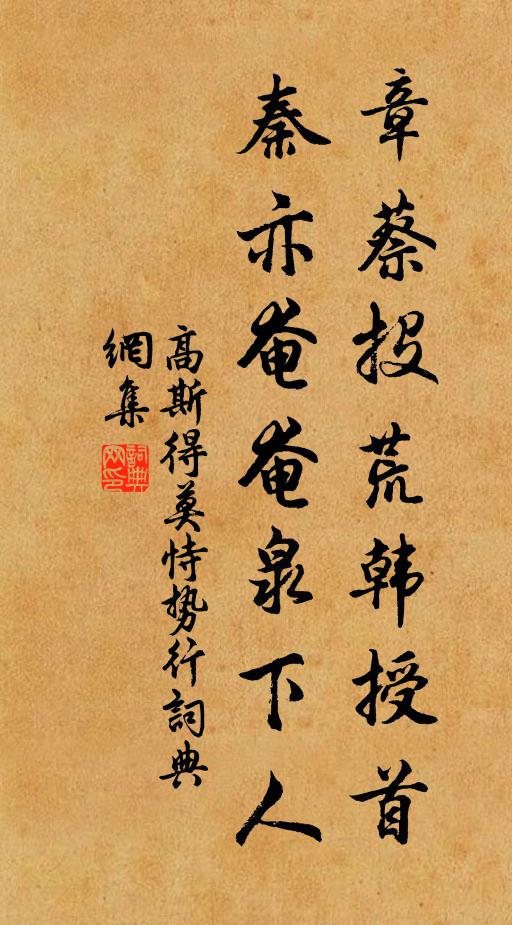 章蔡投荒韩授首
秦亦奄奄泉下人
高斯得莫恃势行詞典
網集
詞典網印